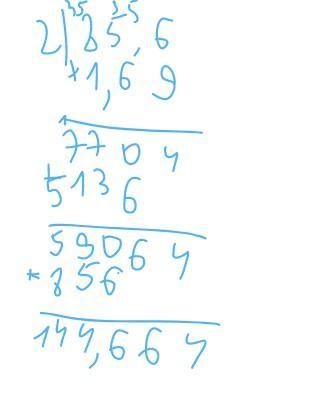 35 3 5
2) 85,6
* 1,69
7704
+ 5136
59064
* 856
144,664